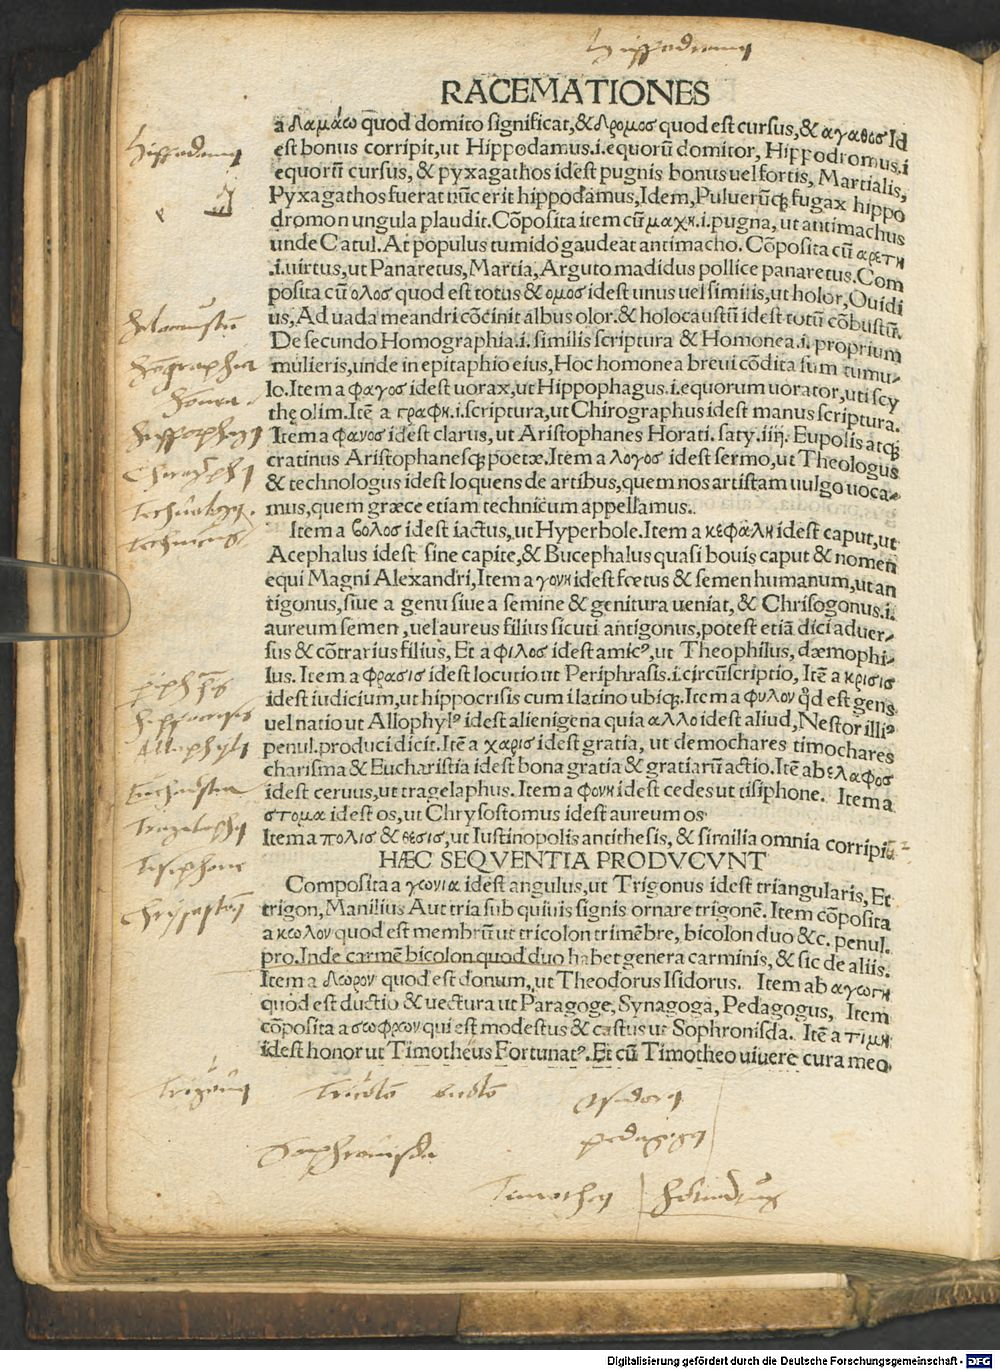 Hippodromus
RACEMATIONES
a δαμάω qđ domito significat,& δρομοσ quod est cursus,& αγαθοσ Id
est bonus corripit,ut Hippodamus.i.equorū domitor, Hippodromus.i
equorū cursus, & pyxagathos idest pugnis bonus uel fortis, Martialis,
Pyxagathos fuerat nūc erit hippodamus, Idem, Puluerūq; fugax hippo
dromon ungula plaudit. Cōposita item cū μαχη.i.pugna, ut antimachus
unde Catul. At populus tumido gaudeat antimacho. Cōposita cū αρετη
.i.uirtus, ut Panaretus, Martia, Arguto madidus pollice panaretus. Com
posita cū ολοσ quod est totus & ομοσ idest unus uel similis, ut holor, Ouidi
us, Ad uada meandri cōcinit albus olor. & holocaustū idest totū cōbustū.
De secundo Homographia.i. similis scriptura & Homonea.i. proprium
mulieris, unde in epitaphio eius, Hoc homonea breui cōdita sum tumu-
lo. Item a φαγοσ idest uorax, ut Hippophagus.i.equorum uorator, uti scy
thę olim. Itē a γραφη.i.scriptura, ut Chirographus idest manus scriptura.
Item a φανοσ idest clarus, ut Aristophanes Horati. saty. iiij. Eupolis atq;
cratinus Aristophanesq; poetæ. Item a λογοσ idest sermo, ut Theologus
& technologus idest loquens de artibus, quem nos artistam uulgo uoca-
mus, quem græce etiam technicum appellamus.
Item a βολοσ idest iactus, ut Hyperbole. Item a κεφαλη idest caput, ut
Acephalus idest sine capite, & Bucephalus quasi bouis caput & nomen
equi Magni Alexandri, Item a γονη idest fœtus & semen humanum, ut an
tigonus, siue a genu siue a semine & genitura ueniat, & Chrisogonus.i.
aureum semen, uel aureus filius sicuti antigonus, potest etiā dici aduer-
sus & cōtrarius filius, Et a φιλοσ idest amicꝰ, ut Theophilus, dæmophi-
lus. Item a φρασισ idest locutio ut Periphrasis.i. circūscriptio, Itē a κρισισ
idest iudicium, ut hippocrisis cum i latino ubiq;. Item a φυλον qđ est gens
uel natio ut Allophylꝰ idest alienigena quia αλλο idest aliud, Nestor illiꝰ
penul. produci dicit. Itē a χαρισ idest gratia, ut demochares timochares
charisma & Eucharistia idest bona gratia & gratiarū actio. Itē ab ελαφοσ
idest ceruus, ut tragelaphus. Item a φονη idest cedes ut tisiphone. Item a
στομα idest os, ut Chrysostomus idest aureum os
Item a πολισ & θεσισ, ut Iustinopolis antithesis, & similia omnia corripiū
HÆC SEQVENTIA PRODVCVNT
Composita a γωνια idest angulus, ut Trigonus idest triangularis, Et
trigon, Manilius Aut tria sub quiuis signis ornare trigonē. Item cōposita
a κωλον quod est membrū ut tricolon trimēbre, bicolon duo &c. penul.
pro. Inde carmē bicolon quod duo habet genera carminis, & sic de aliis.
Item a δωρον quod est donum, ut Theodorus Isidorus. Item ab αγωγη
quod est ductio & uectura ut Paragoge, Synagoga, Pedagogus, Item
cōposita a σωφρων qui est modestus & castus ut Sophronisda. Itē a τιμη
idest honor ut Timotheus Fortunatꝰ. Et cū Timotheo uiuere cura meo
Hippodamus
Holocaustū
Technicus
Allophylus
Eucharistia
Tragelaphus
Tisiphone
Trigonus
Tricolō bicolō
Isidorus
pedagogus
Sophronisda
Timotheus
Digitalisierung gefördert durch die Deutsche Forschungsgemeinschaft - DFG